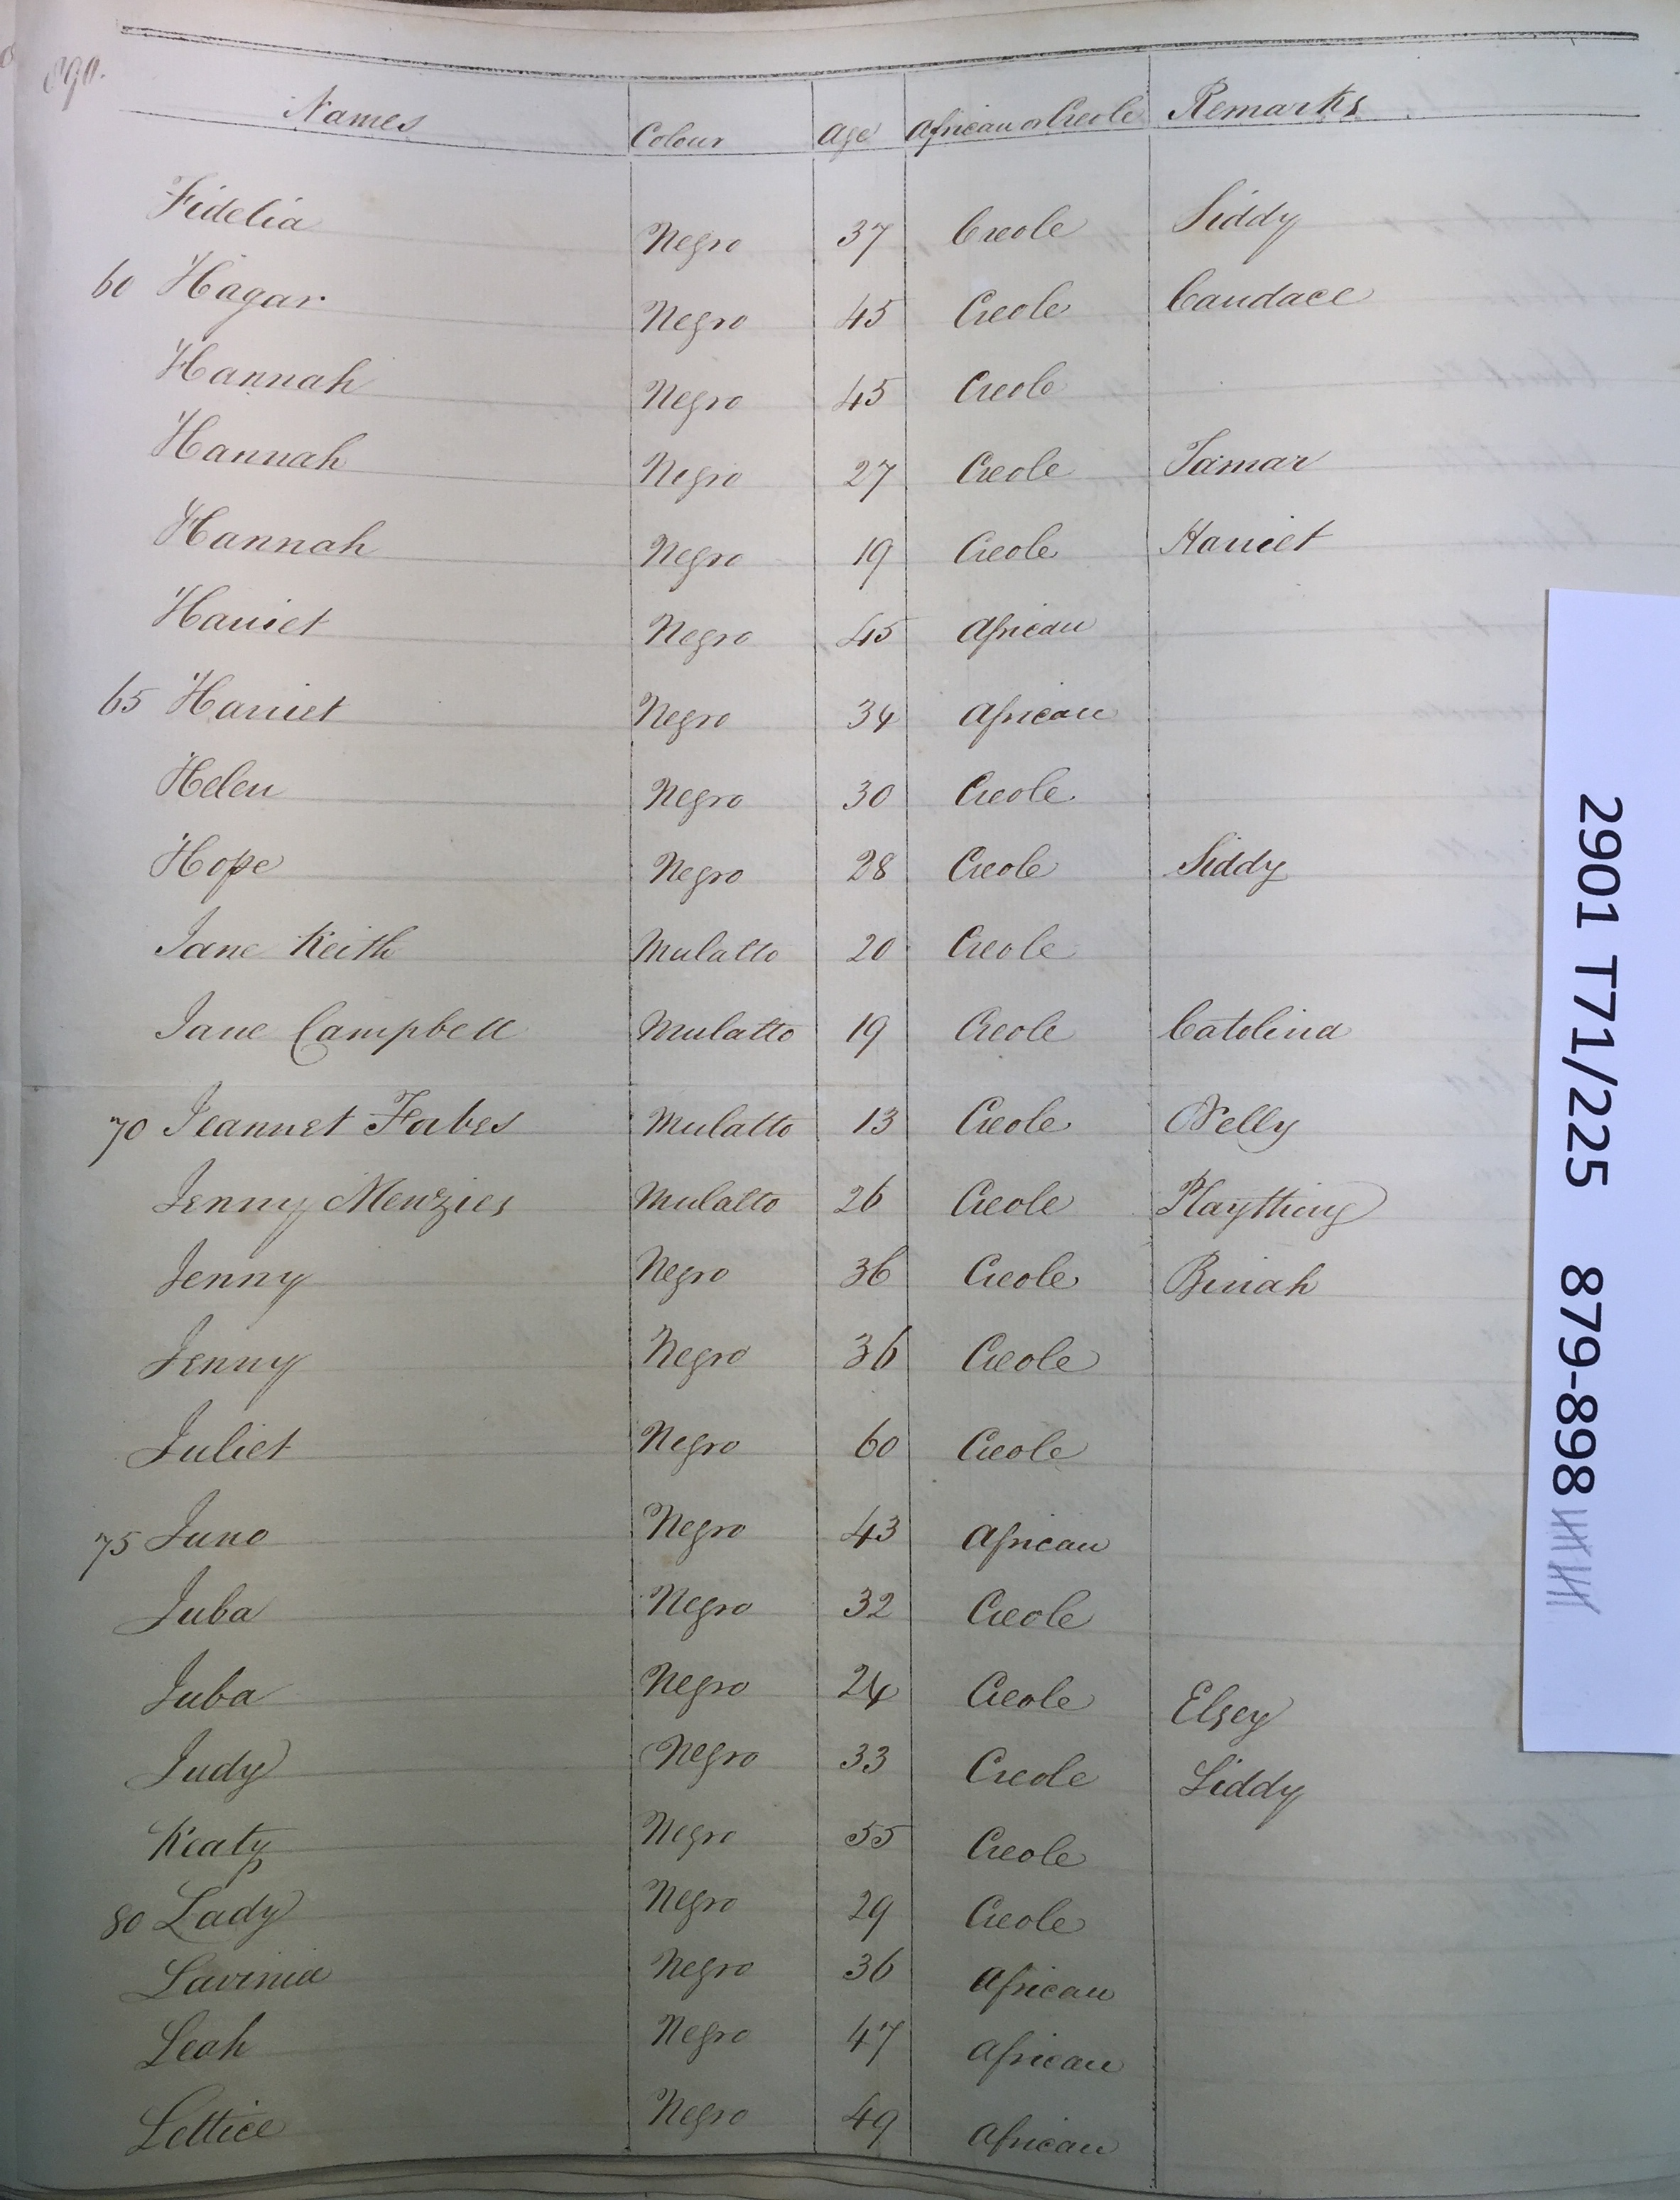 890.
Names Colour Age African or Creole Remarks
Fidelia Negro 37 Creole Siddy
60 Hagar Negro 45 Creole Candace
Hannah Negro 45 Creole
Hannah Negro 27 Creole Tamar
Hannah Negro 19 Creole Harriet
Harriet Negro 45 African
65 Harriet Negro 34 African
Helen Negro 30 Creole
Hope Negro 28 Creole Siddy
Jane Keith Mulatto 20 Creole
Jane Campbell Mulatto 19 Creole Catolina
70 Jeannet Forbes Mulatto 13 Creole Nelly
Jenny Menzies Mulatto 26 Creole Plaything
Jenny Negro 36 Creole Binah
Jenny Negro 36 Creole
Juliet Negro 60 Creole
75 Juno Negro 43 African
Juba Negro 32 Creole
Juba Negro 24 Creole Elsey
Judy Negro 33 Creole Siddy
Keaty Negro 55 Creole
80 Lady Negro 29 Creole
Lavinia Negro 36 African
Leah Negro 47 African
Lettice Negro 49 African
2901 T71/225 879-898